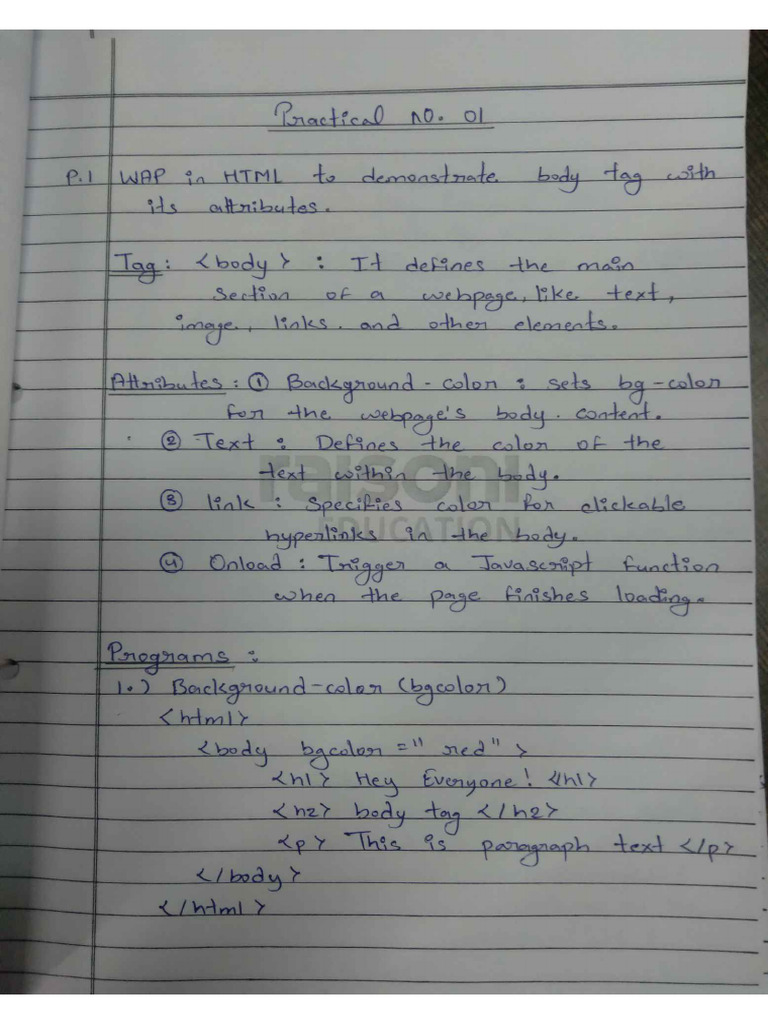 Practical no. 01
P.1 WAP in HTML to demonstrate body tag with
its attributes.
Tag : <body> : It defines the main
section of a webpage, like text,
image, links. and other elements.
Attributes : ① Background-color : sets bg-color
for the webpage's body. content.
② Text : Defines the color of the
text within the body.
raisoni
③ link : Specifies color for clickable
EDUCATION
hyperlinks in the body.
④ Onload : Trigger a Javascript function
when the page finishes loading.
Programs :
1.) Background-color (bgcolor)
<html>
<body bgcolor = "red">
<h1> Hey Everyone! </h1>
<h2> body tag </h2>
<p> This is paragraph text </p>
</body>
</html>